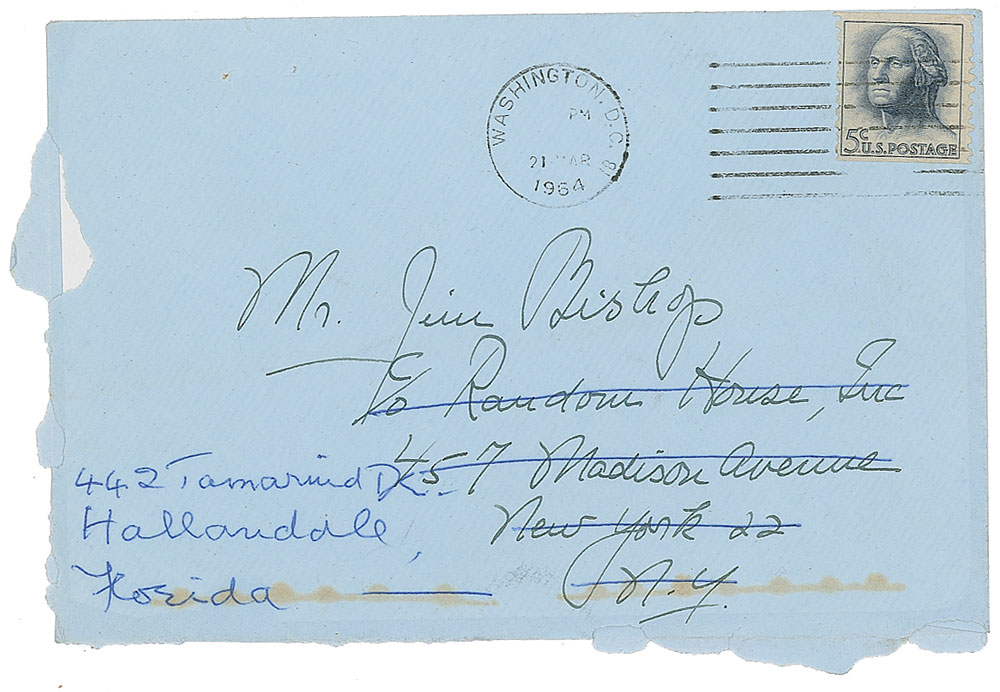 WASHINGTON, D.C. 18
PM
21 MAR
1964
5c
U.S. POSTAGE
Mr. Jim Bishop
c/o Random House, Inc
457 Madison Avenue
New York 22
N.Y.
442 Tamarind Dr.
Hallandale,
Florida